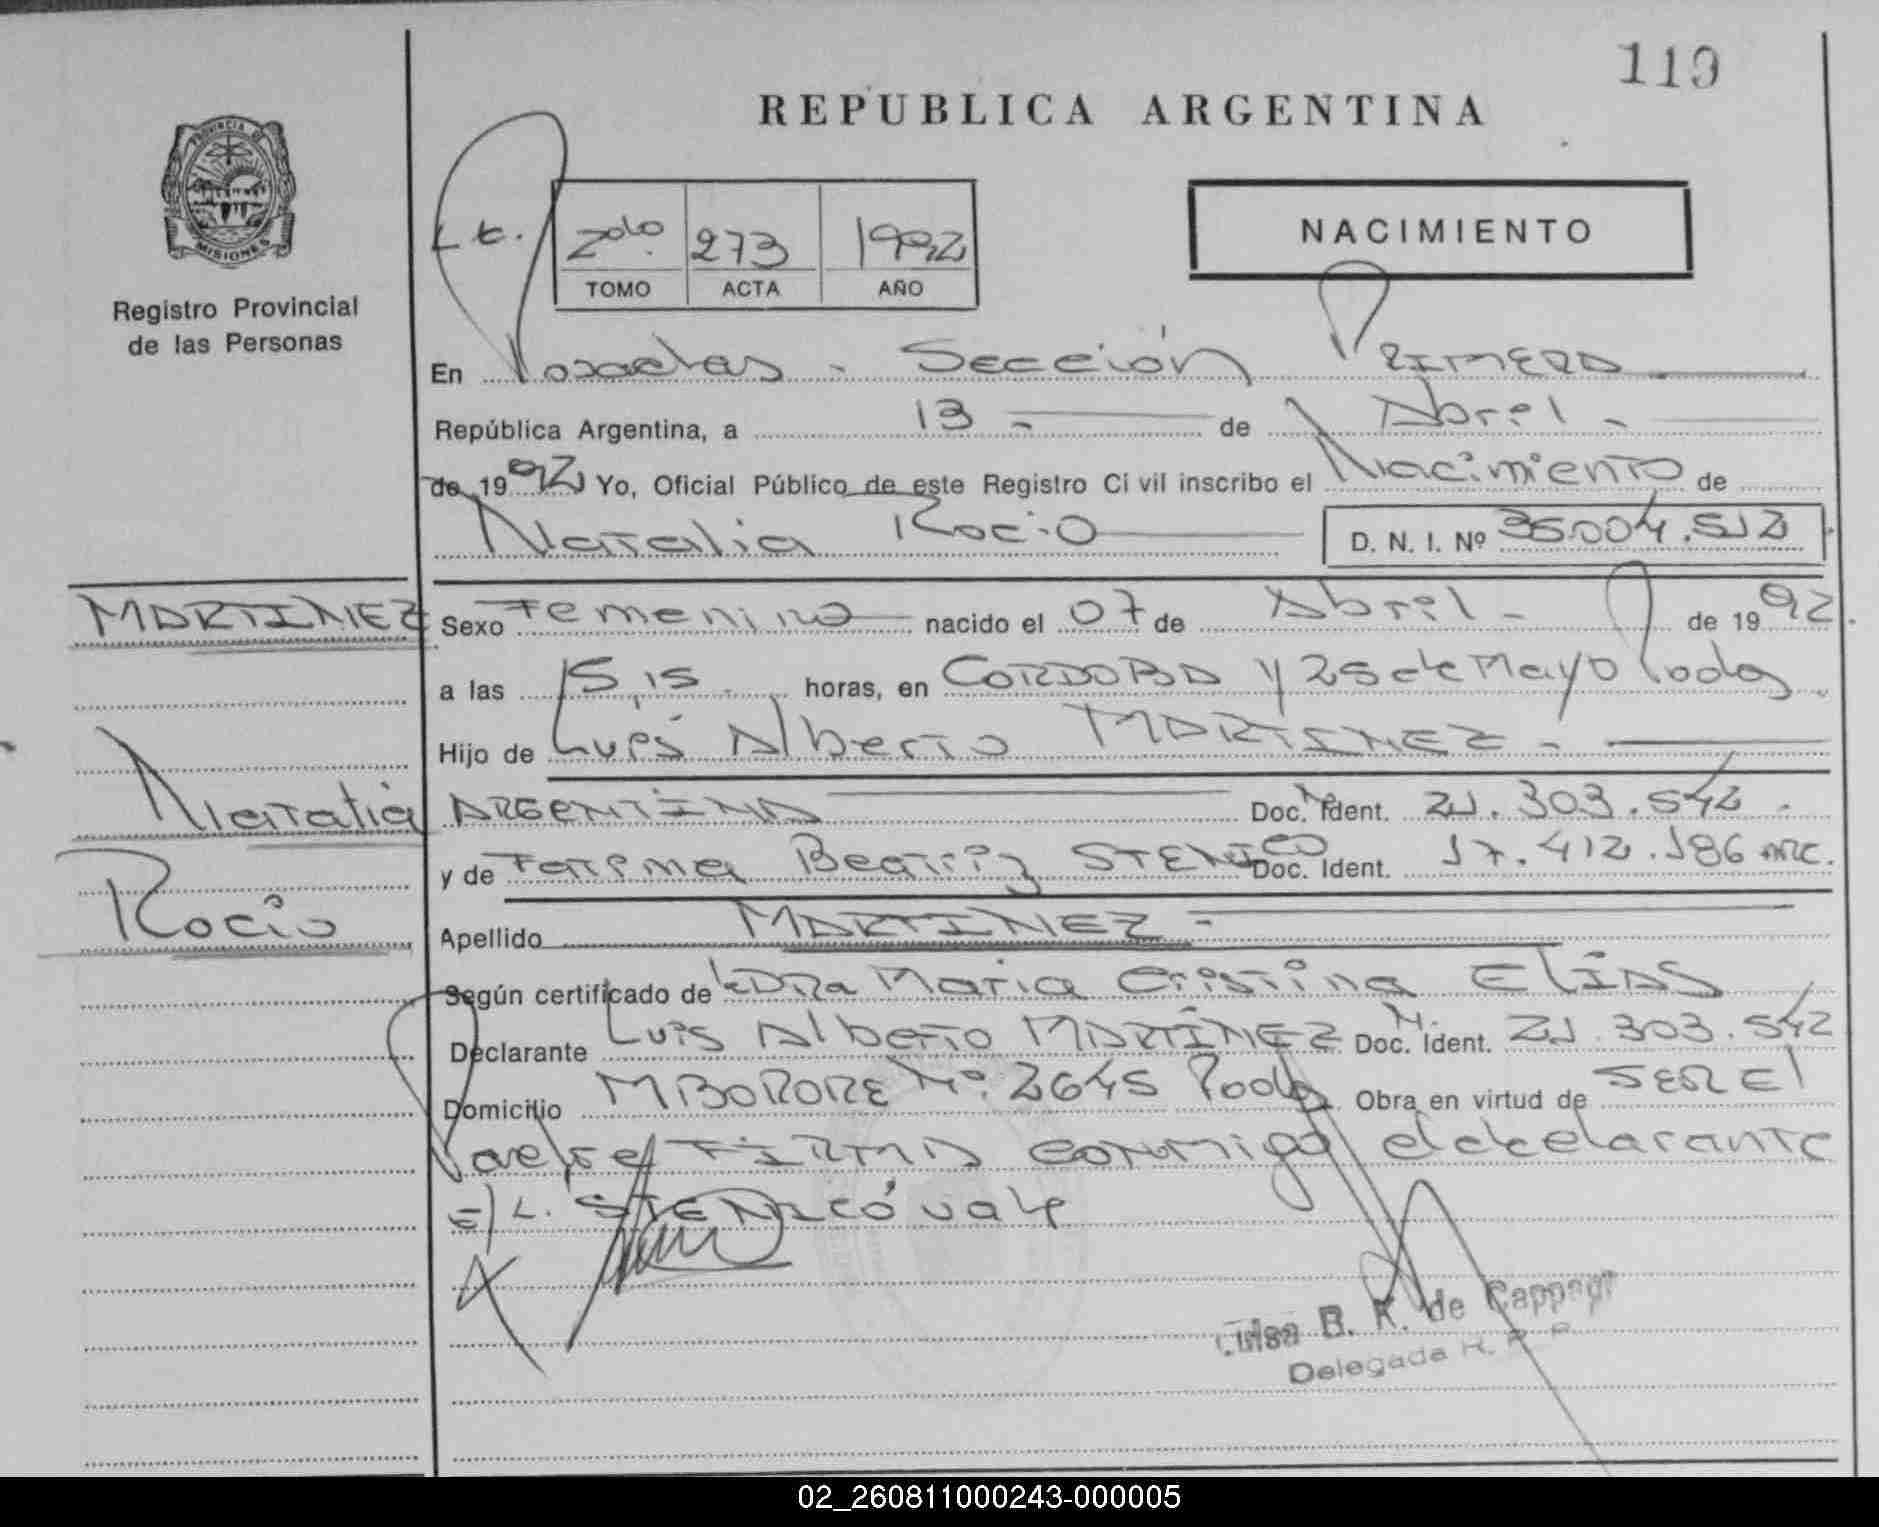 119
REPUBLICA ARGENTINA
PROVINCIA DE
MISIONES
Registro Provincial
de las Personas
Lt. 2do. 273 1992
TOMO ACTA AÑO
NACIMIENTO
En Posadas - Sección PRIMERA
República Argentina, a 13 - de Abril -
de 1992 Yo, Oficial Público de este Registro Civil inscribo el Nacimiento de
Natalia Rocio D. N. I. Nº 36.004.512
MARTINEZ
Natalia
Rocio
Sexo Femenino nacido el 07 de Abril - de 1992.
a las 15,15 horas, en CORDOBA y 25 de Mayo Podas
Hijo de Luis Alberto MARTINEZ -
ARGENTINA Doc. N. Ident. 21.303.542.
y de Fatima Beatriz STENICO Doc. Ident. 17.412.186
Apellido MARTINEZ -
Según certificado de la DRA Maria Cristina ELIAS
Declarante Luis Alberto MARTINEZ Doc. N. Ident. 21.303.542
Domicilio MBORORE Nº. 2645 Podas Obra en virtud de SER El
Padre FIRMA conmigo el declarante
E/L. STENICO vale
Luisa B. K. de
Delegada R. P. P.
02_260811000243-000005